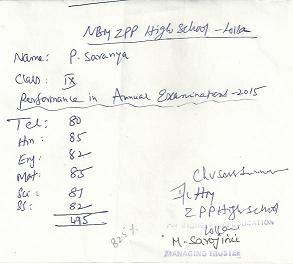 NBM ZPP High School - Lolla
Name: P. Saranya
Class: IX
Performance in Annual Examinations - 2015
Tel: 80
Hin: 85
Eng: 82
Mat: 85
Sci: 81
SS: 82
495
82.5%
I/c Hm
ZPP High School
Lolla
EDUCATION
M. Sarojini
MANAGING TRUSTEE